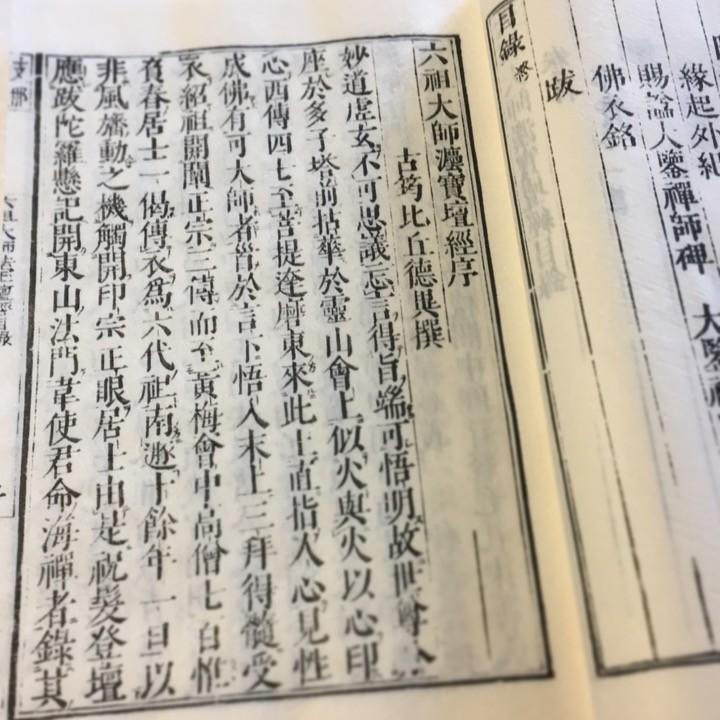 緣起外紀
賜諡大鑒禪師碑 大鑒禪
佛衣銘
跋
目錄終
六祖大師灋寶壇經序
古筠比丘德異撰
妙道虛玄不可思議忘言得旨端可悟明故世尊分
座於多子塔前拈華於靈山會上似火與火以心印
心西傳四七至菩提達磨東來此土直指人心見性
成佛有可大師者首於言下悟入末上三拜得髓受
衣紹祖開闡正宗三傳而至黃梅會中高僧七百惟
負舂居士一偈傳衣爲六代祖南遯十餘年一旦以
非風旛動之機觸開印宗正眼居士由是祝髮登壇
應跋陀羅懸記開東山法門韋使君命海禪者錄其
支那